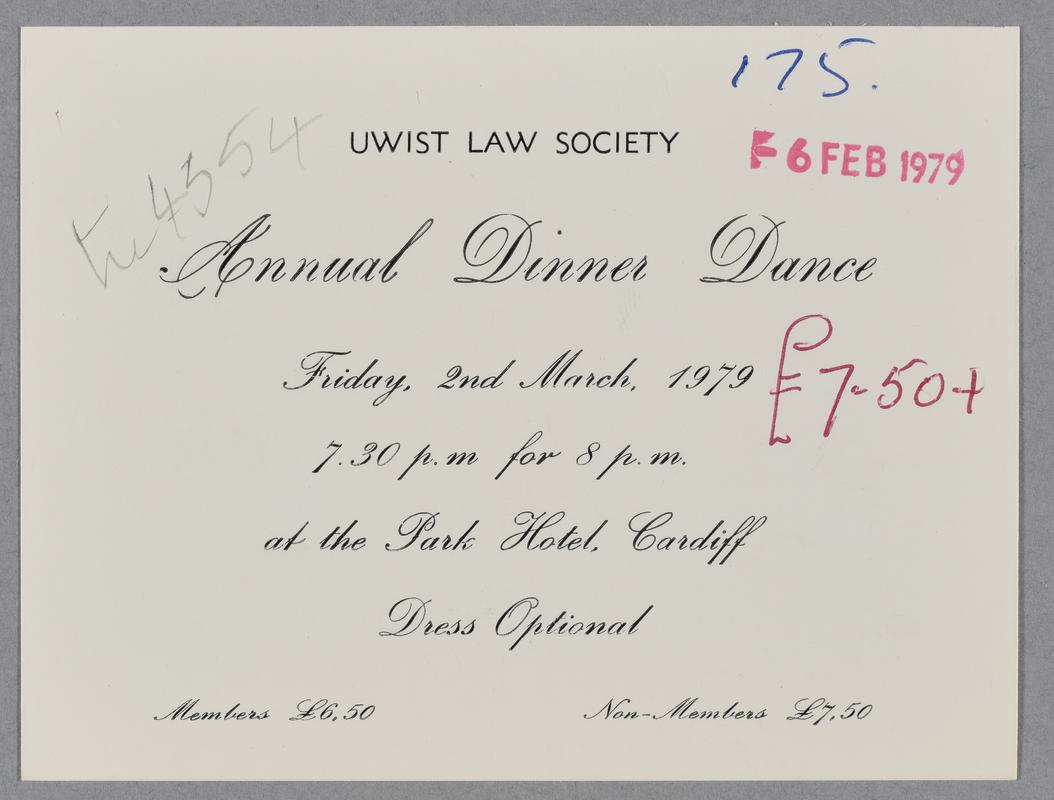 175.
UWIST LAW SOCIETY
6 FEB 1979
4554
Annual Dinner Dance
Friday, 2nd March, 1979
£7-50+
7.30 p.m for 8 p.m.
at the Park Hotel, Cardiff
Dress Optional
Members £6.50
Non-Members £7.50